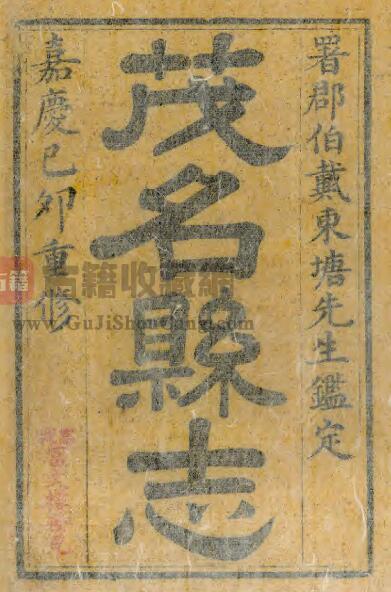 署郡伯戴東塘先生鑑定
茂名縣志
嘉慶己卯重修
古籍收藏網
www.GuJiShouCang.com